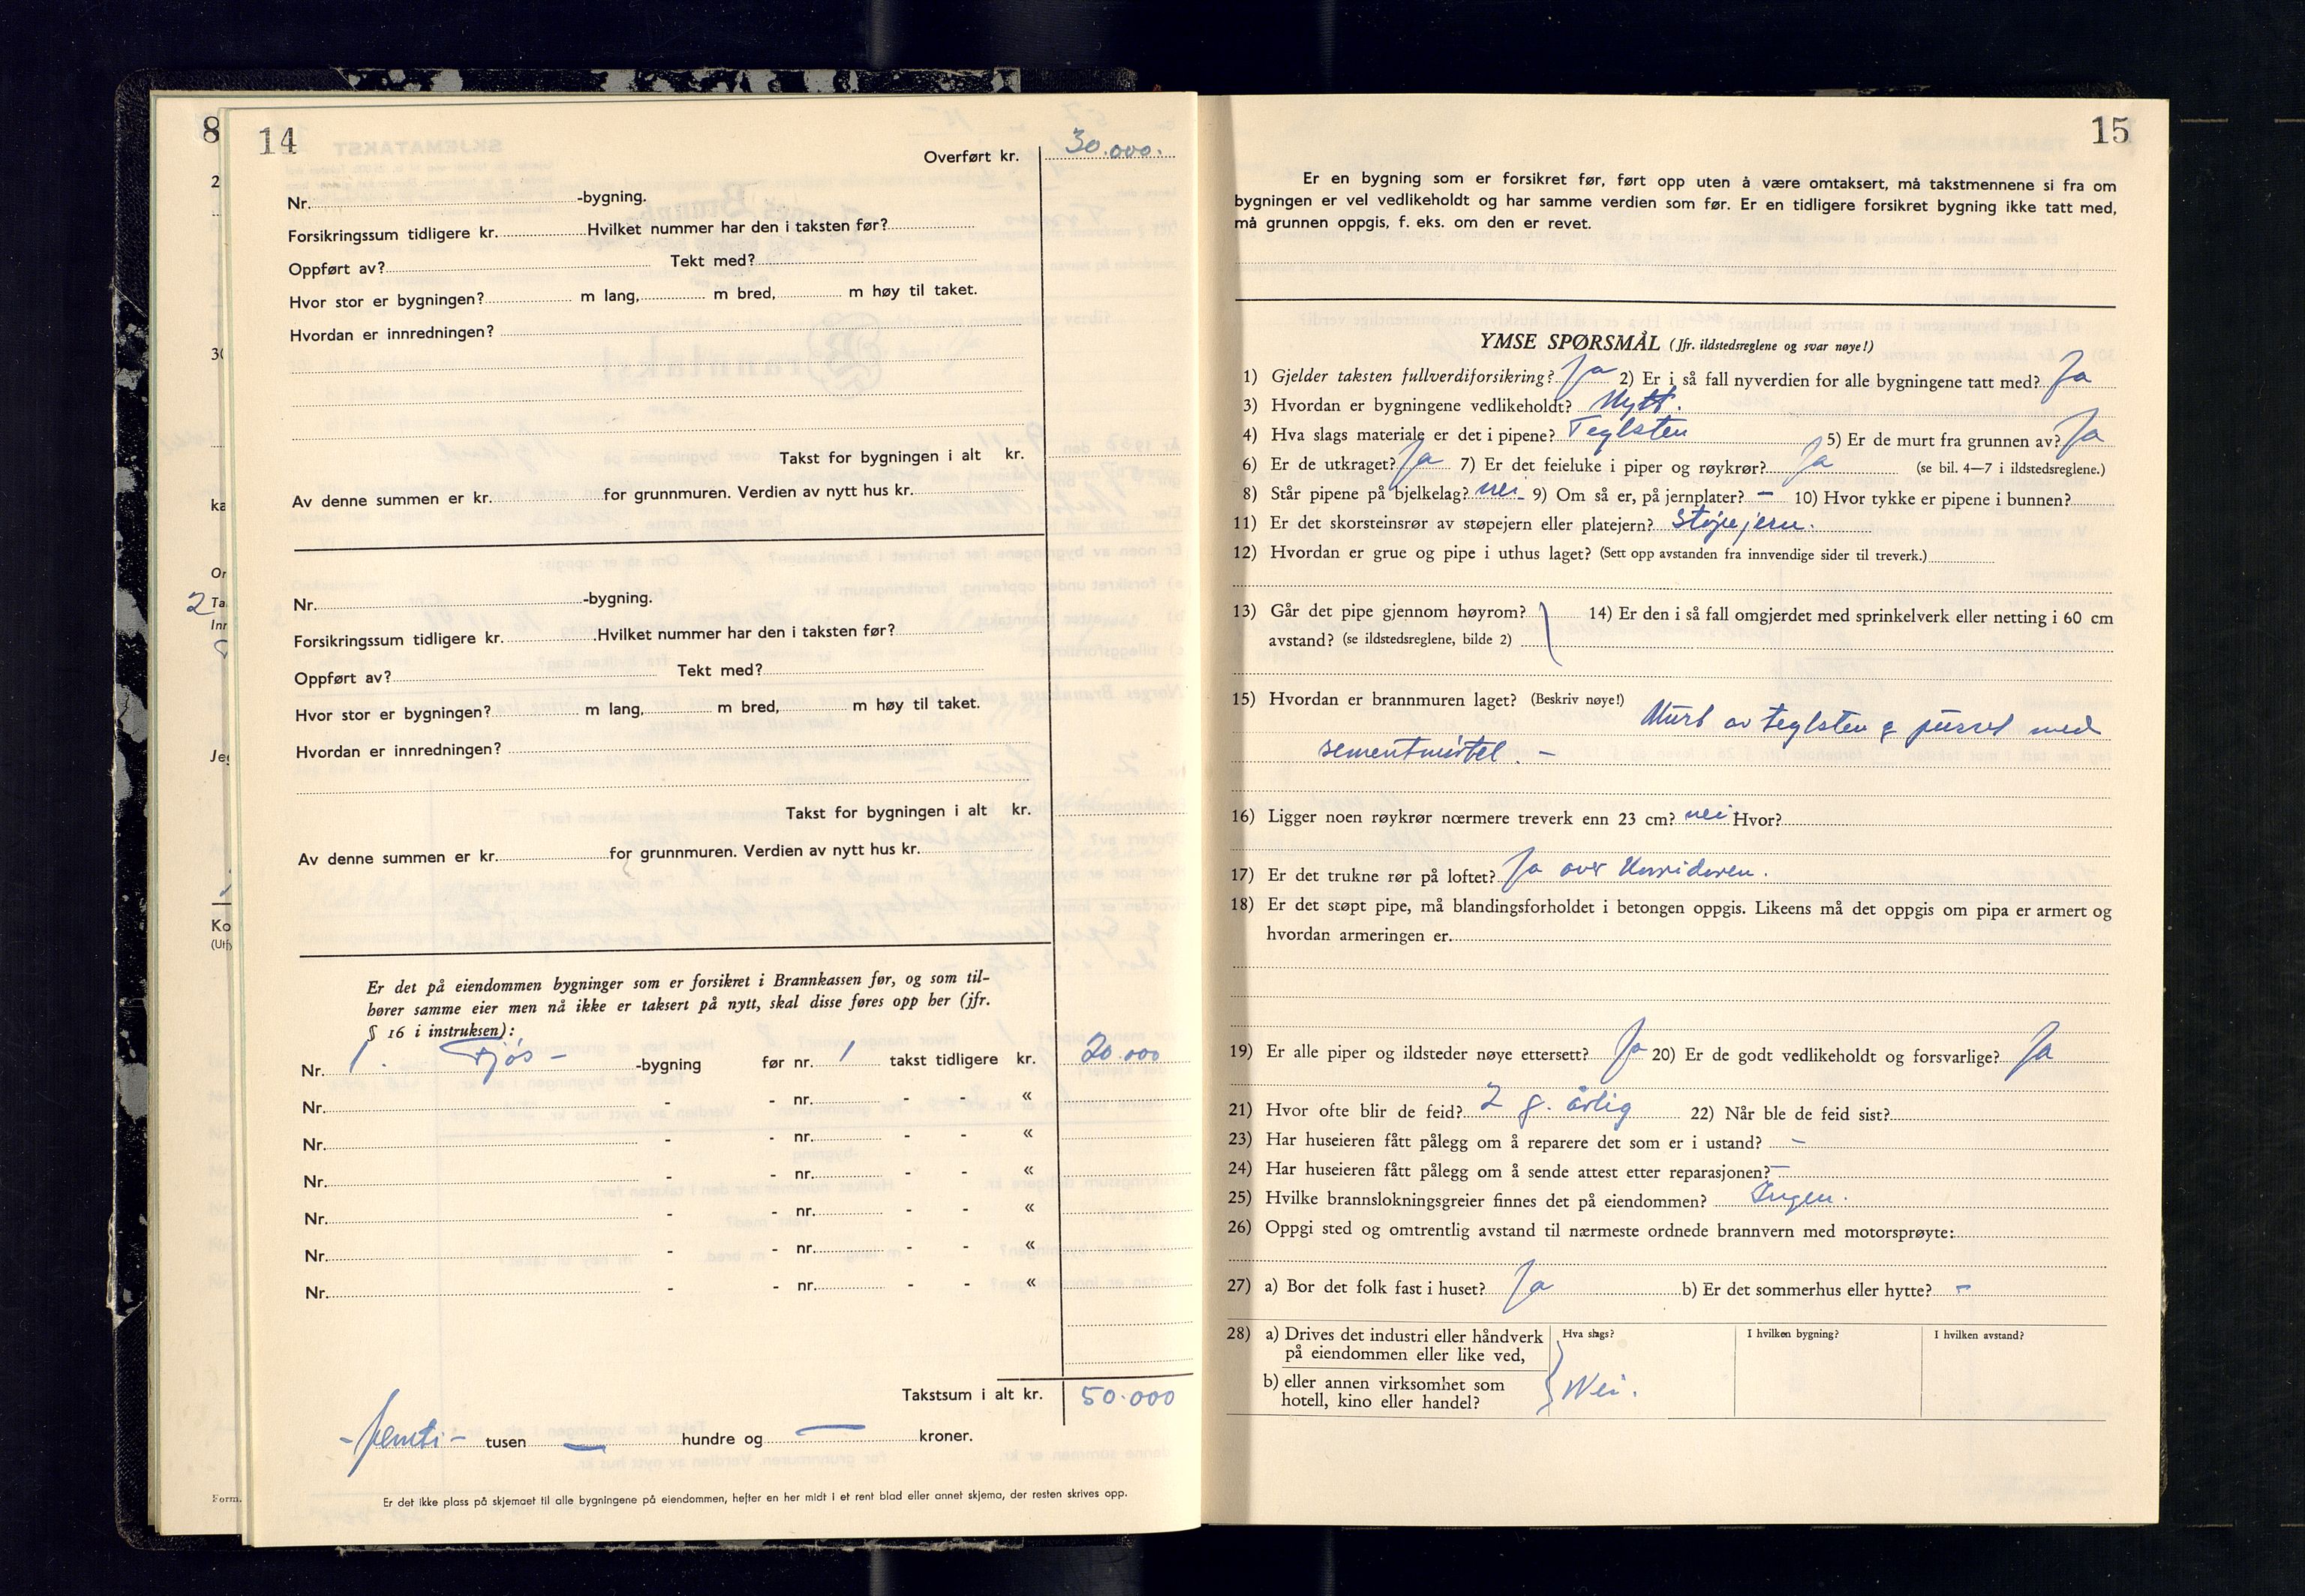 8
2
30
ka
Or
2 Ta
Inr
Jeg
Ko
(Utf
Form.
14
Overført kr. 30.000.
Nr. -bygning.
Forsikringssum tidligere kr. Hvilket nummer har den i taksten før?
Oppført av? Tekt med?
Hvor stor er bygningen? m lang, m bred, m høy til taket.
Hvordan er innredningen?
Takst for bygningen i alt kr.
Av denne summen er kr. for grunnmuren. Verdien av nytt hus kr.
Nr. -bygning.
Forsikringssum tidligere kr. Hvilket nummer har den i taksten før?
Oppført av? Tekt med?
Hvor stor er bygningen? m lang, m bred, m høy til taket.
Hvordan er innredningen?
Takst for bygningen i alt kr.
Av denne summen er kr. for grunnmuren. Verdien av nytt hus kr.
Er det på eiendommen bygninger som er forsikret i Brannkassen før, og som til-
hører samme eier men nå ikke er taksert på nytt, skal disse føres opp her (jfr.
§ 16 i instruksen):
Nr. 1. Fjøs - -bygning før nr. 1 takst tidligere kr. 20.000
Nr. - - nr. - - «
Nr. - - nr. - - «
Nr. - - nr. - - «
Nr. - - nr. - - «
Nr. - - nr. - - «
Nr. - - nr. - - «
Takstsum i alt kr. 50.000
- femti - tusen — hundre og — kroner.
Er det ikke plass på skjemaet til alle bygningene på eiendommen, hefter en her midt i et rent blad eller annet skjema, der resten skrives opp.
15
Er en bygning som er forsikret før, ført opp uten å være omtaksert, må takstmennene si fra om
bygningen er vel vedlikeholdt og har samme verdien som før. Er en tidligere forsikret bygning ikke tatt med,
må grunnen oppgis, f. eks. om den er revet.
YMSE SPØRSMÅL (Jfr. ildstedsreglene og svar nøye!)
1) Gjelder taksten fullverdiforsikring? Ja 2) Er i så fall nyverdien for alle bygningene tatt med? Ja
3) Hvordan er bygningene vedlikeholdt? Nytt.
4) Hva slags materiale er det i pipene? Teglsten 5) Er de murt fra grunnen av? Ja
6) Er de utkraget? Ja 7) Er det feieluke i piper og røykrør? Ja (se bil. 4—7 i ildstedsreglene.)
8) Står pipene på bjelkelag? nei 9) Om så er, på jernplater? — 10) Hvor tykke er pipene i bunnen?
11) Er det skorsteinsrør av støpejern eller platejern? Støpejern.
12) Hvordan er grue og pipe i uthus laget? (Sett opp avstanden fra innvendige sider til treverk.)
13) Går det pipe gjennom høyrom? 14) Er den i så fall omgjerdet med sprinkelverk eller netting i 60 cm
avstand? (se ildstedsreglene, bilde 2)
15) Hvordan er brannmuren laget? (Beskriv nøye!) Murt av teglsten & pusset med
sementmørtel. —
16) Ligger noen røykrør nærmere treverk enn 23 cm? nei Hvor?
17) Er det trukne rør på loftet? Ja over Korridoren.
18) Er det støpt pipe, må blandingsforholdet i betongen oppgis. Likeens må det oppgis om pipa er armert og
hvordan armeringen er.
19) Er alle piper og ildsteder nøye ettersett? Ja 20) Er de godt vedlikeholdt og forsvarlige? Ja
21) Hvor ofte blir de feid? 2 g. årlig 22) Når ble de feid sist?
23) Har huseieren fått pålegg om å reparere det som er i ustand? —
24) Har huseieren fått pålegg om å sende attest etter reparasjonen? —
25) Hvilke brannslokningsgreier finnes det på eiendommen? Ingen.
26) Oppgi sted og omtrentlig avstand til nærmeste ordnede brannvern med motorsprøyte:
27) a) Bor det folk fast i huset? Ja b) Er det sommerhus eller hytte? —
28) a) Drives det industri eller håndverk Hva slags? I hvilken bygning? I hvilken avstand?
på eiendommen eller like ved,
b) eller annen virksomhet som Nei.
hotell, kino eller handel?